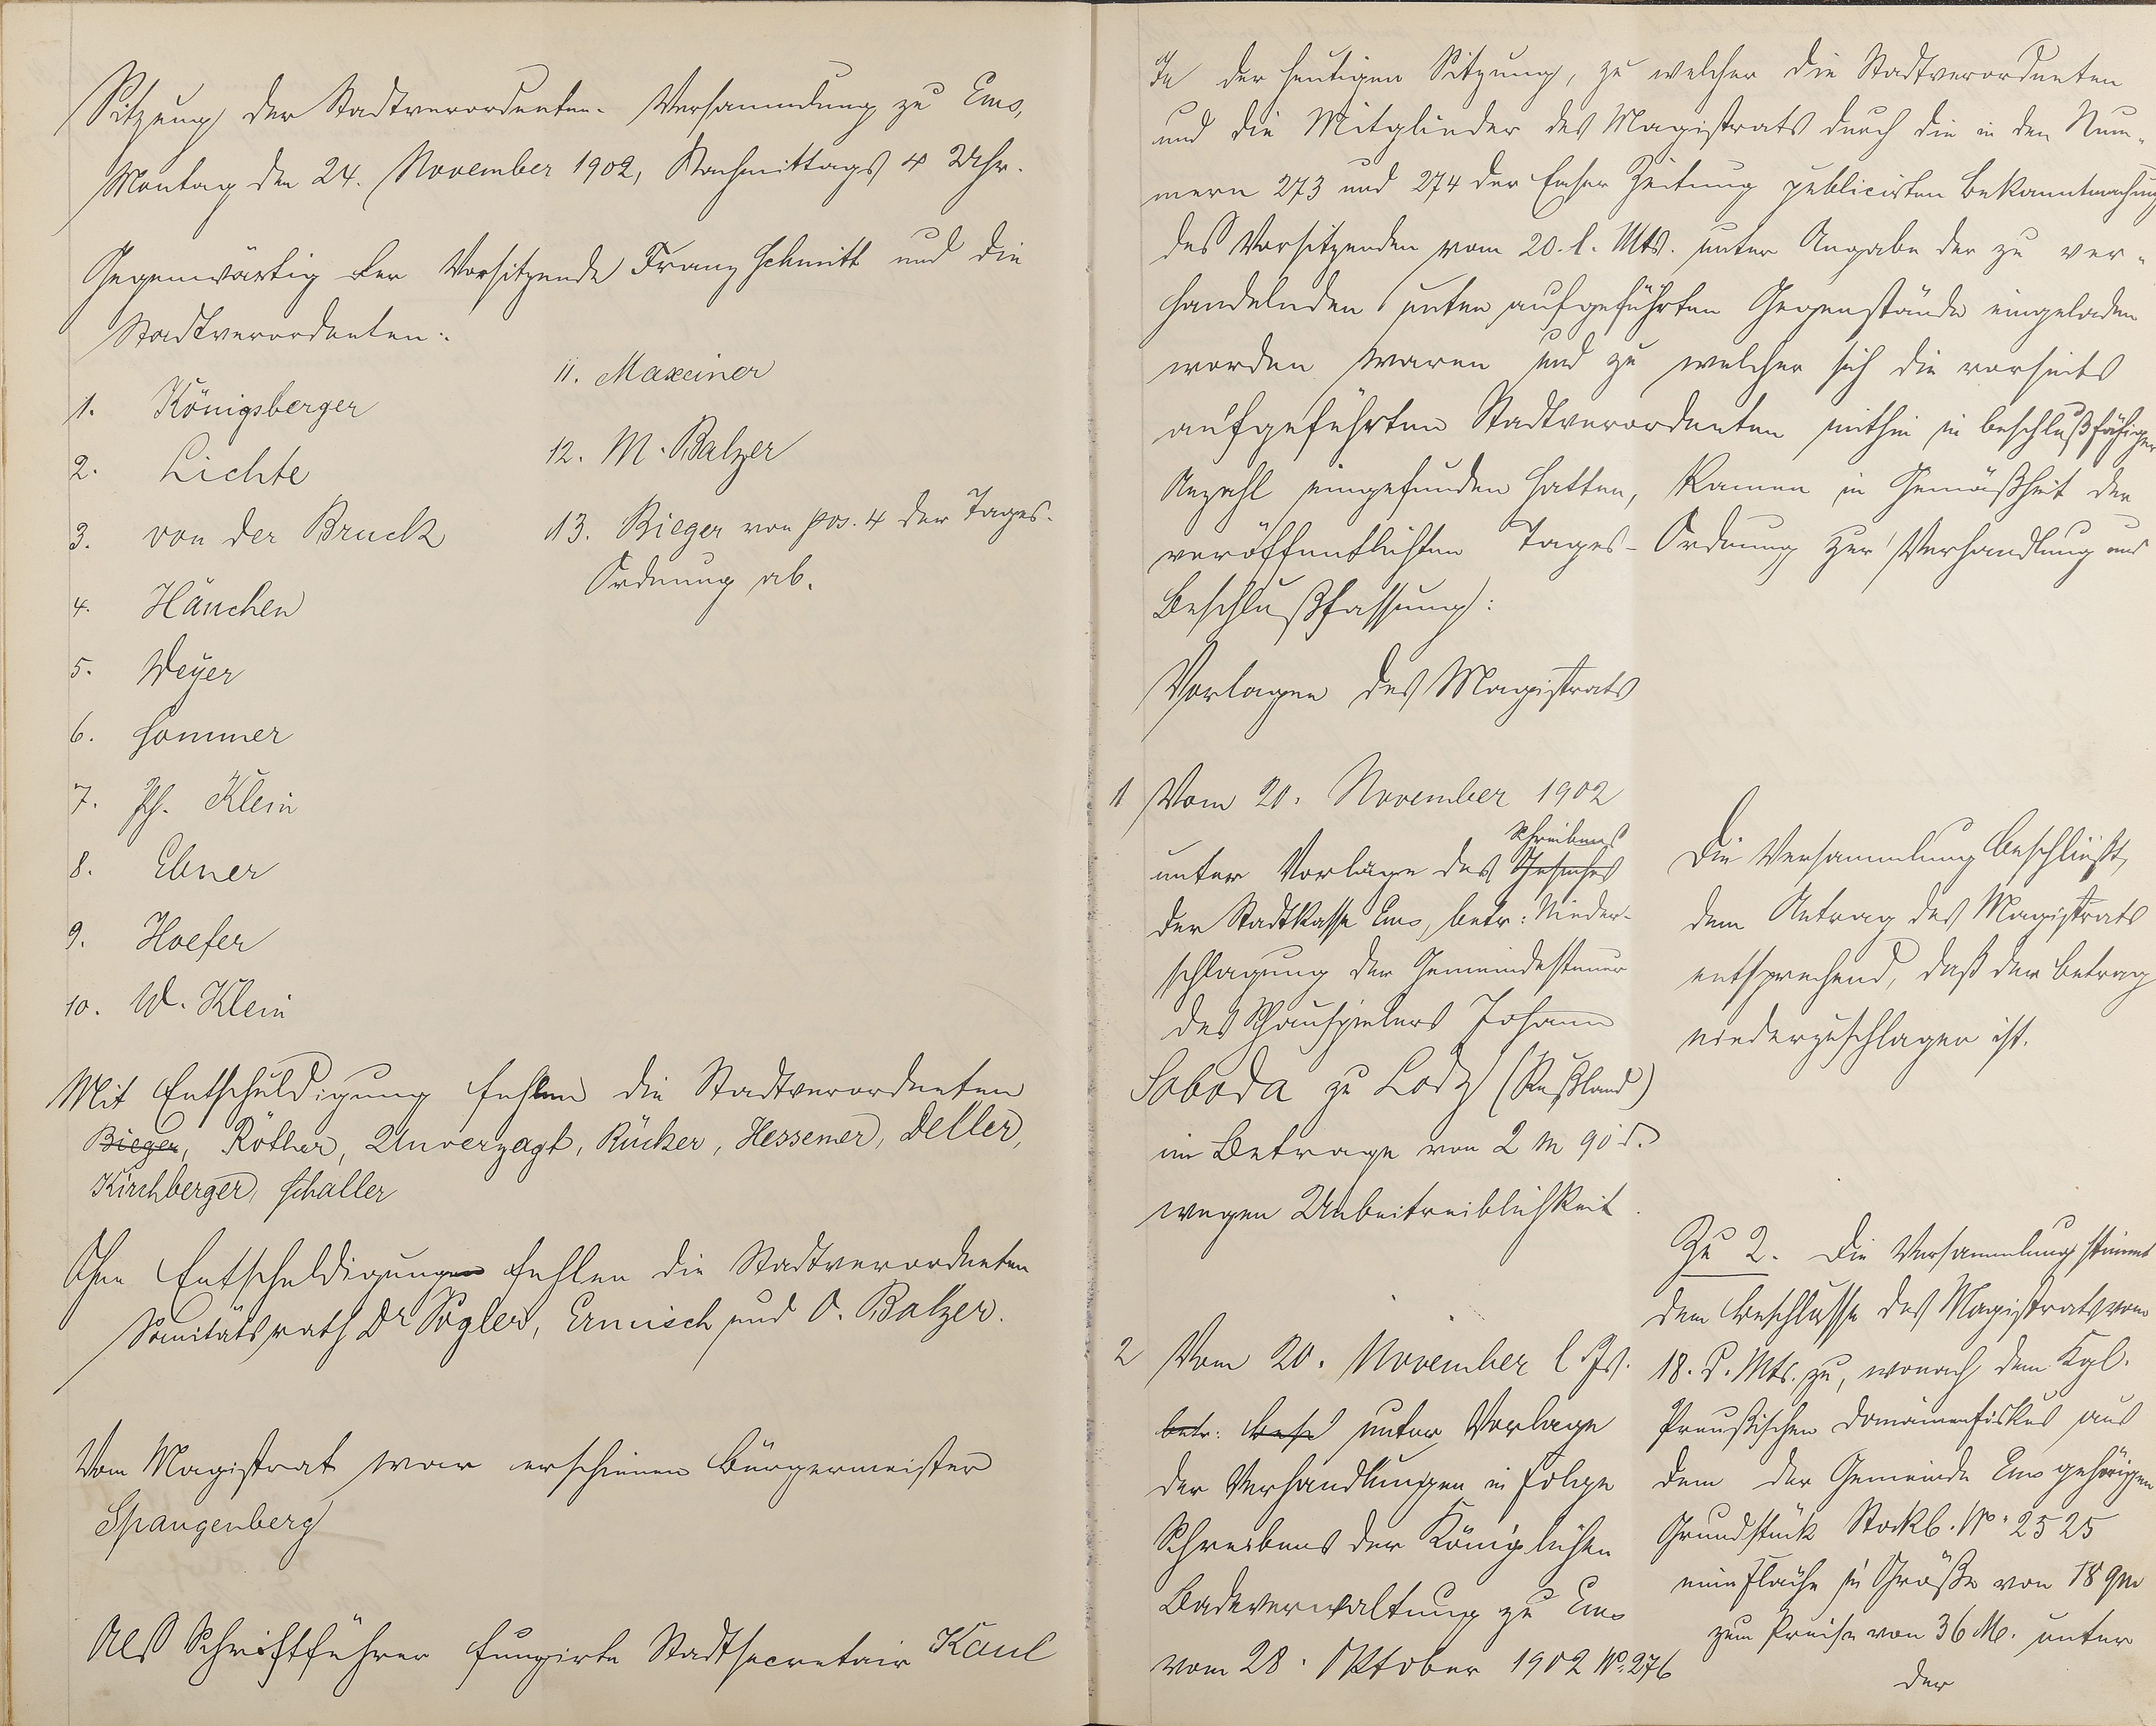 Sitzung der Stadtverordneten-Versammlung zu Ems,
Montag den 24. November 1902, Nachmittags 4 Uhr.
Gegenwärtig der Vorsitzende Franz Schmitt und die
Stadtverordneten:
1. Königsberger
2. Lichte
3. von der Bruck
4. Hänchen
5. Weyer
6. Sommer
7. Ph. Klein
8. Ebner
9. Hoefer
10. W. Klein
11. Maxeiner
12. M. Balzer
13. Bieger von pos. 4 der Tages-
Ordnung ab.
Mit Entschuldigung fehlen die Stadtverordneten
Bieger, Röther, Unverzagt, Rücker, Hessemer, Deller,
Kirchberger, Schaller
Ohne Entschuldigungen fehlen die Stadtverordneten
Sanitätsrath Dr Vogler, Ermisch und O. Balzer.
Vom Magistrat war erschienen Bürgermeister
Spangenberg
Als Schriftführer fungirte Stadtsecretair Kaul
In der heutigen Sitzung, zu welcher die Stadtverordneten
und die Mitglieder des Magistrats durch die in den Num-
mern 273 und 274 der Emser Zeitung publicirten Bekanntmachung
des Vorsitzenden vom 20. l. Mts. unter Angabe der zu ver-
handelnden unten aufgeführten Gegenstände eingeladen
worden waren und zu welcher sich die vorseits
aufgeführten Stadtverordneten mithin in beschlußfähiger
Anzahl eingefunden hatten, kamen in Gemäßheit der
veröffentlichten Tages-Ordnung zur Verhandlung und
Beschlußfassung:
Vorlagen des Magistrats
1 Vom 20. November 1902
Schreibens
unter Vorlage des Gesuches
der Stadtkasse Ems, betr: Nieder-
schlagung der Gemeindesteuer
des Schauspielers Johann
Soboda zu Lodz (Rußland)
im Betrage von 2 M 90 d.
wegen Unbeitreiblichkeit.
Die Versammlung beschließt,
dem Antrag des Magistrats
entsprechend, daß der Betrag
niederzuschlagen ist.
2 Vom 20. November l. Js.
betr: unter Vorlage
der Verhandlungen in Folge
Schreibens der Königlichen
Badeverwaltung zu Ems
vom 28. Oktober 1902 No. 276
Zu 2. Die Versammlung stimmt
dem Beschlusse des Magistrats vom
18. d. Mts. zu, wonach dem Kgl.
Preußischen Domainenfiskus aus
dem der Gemeinde Ems gehörigen
Grundstück Stockb. No. 2525
eine Fläche in Größe von 18 qm
zum Preise von 36 M. unter
der